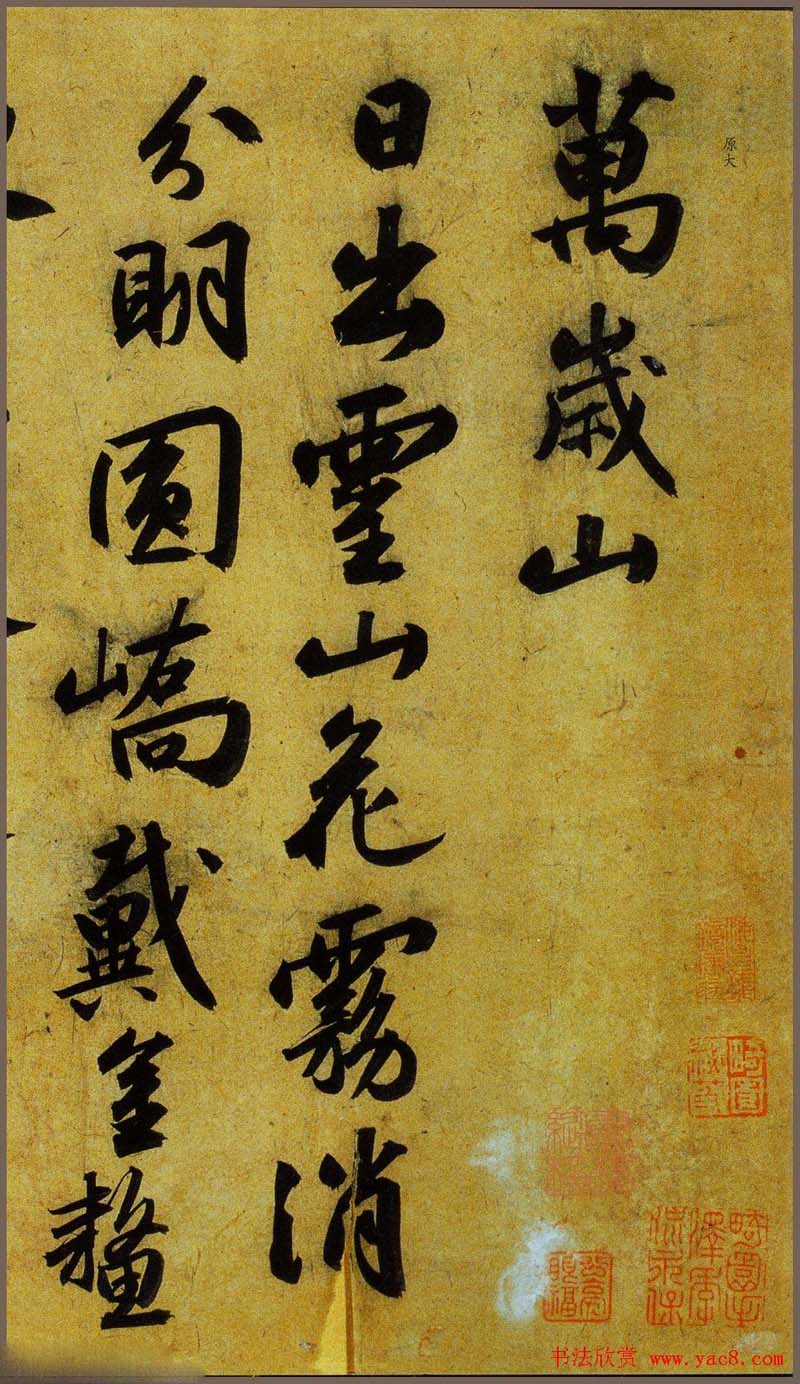 原大
萬歲山
日出靈山花霧消
分明圓嶠戴金鼇
书法欣赏 www.yac8.com